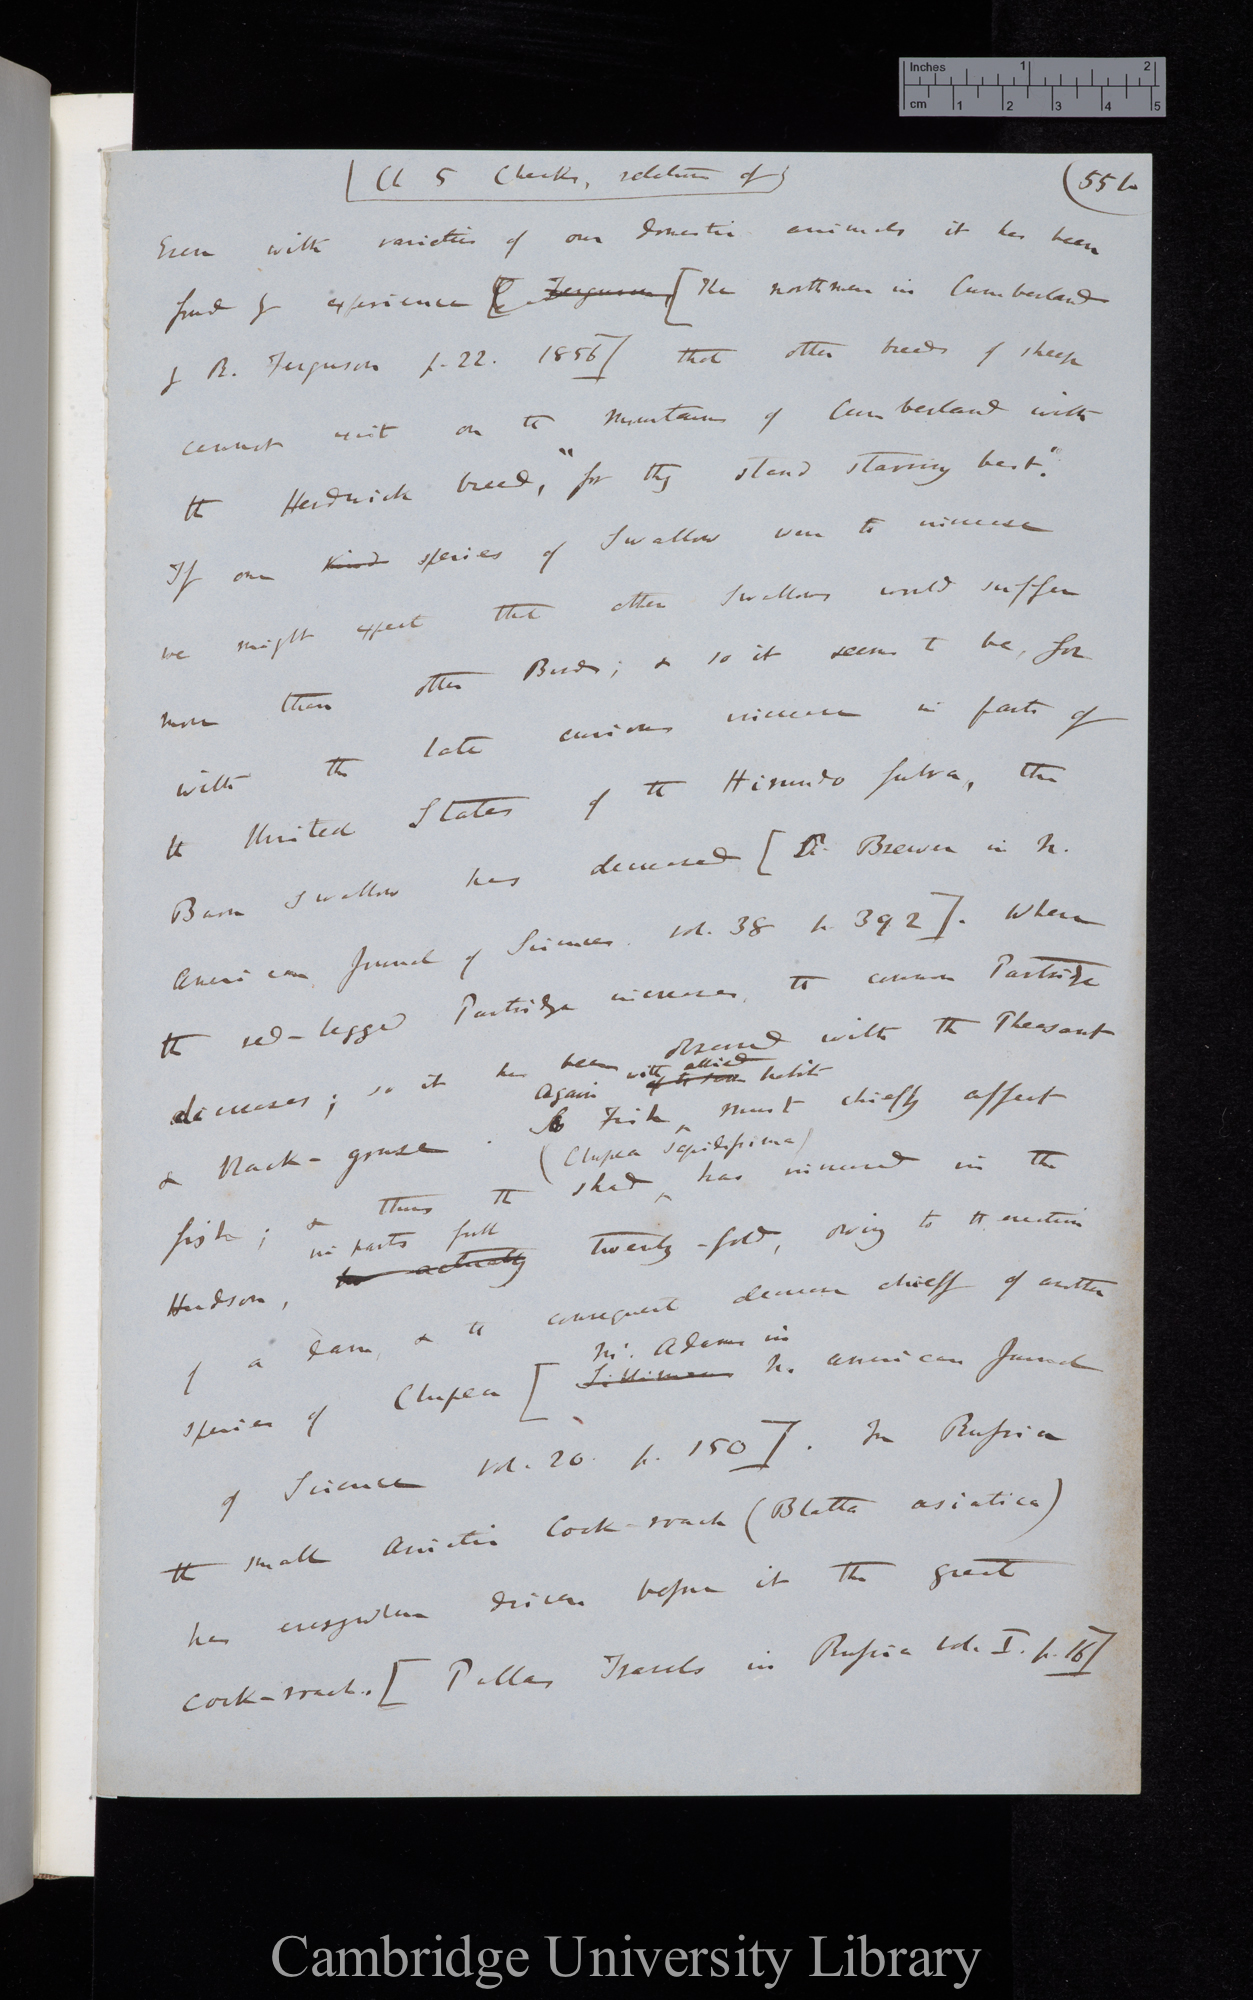 Inches 1 2
cm 1 2 3 4 5
[Ch 5 Checks, relation of]
(55 b
Even with varieties of our domestic animals it has been
found by experience [Ferguson [The northmen in Cumberland
by R. Ferguson p. 22. 1856] that other breeds of sheep
cannot exist on the mountains of Cumberland with
the Herdwick breed, "for they stand starving best."
If one kind species of Swallow were to increase
we might expect that other Swallows would suffer
more than other Birds; & so it seems to be, for
with the late curious increase in parts of
the United States of the Hirundo fulva, the
Barn Swallow has decreased [Dr. Brewer in N.
American Journal of Sciences. vol. 38 p. 392]. When
the red-legged Partridge increases, the common Partridge
decreases; so it has been observed with the Pheasant
Again with allied habits
& Black-grouse. Fish must chiefly affect
(Clupea Sapidissima)
fish; & thus the shad has increased in the
in parts full
Hudson, actually twenty-fold, owing to the erection
of a dam, & the consequent decrease chiefly of another
Mr. Adams in
species of Clupea [Silliman N. American Journal
of Science vol. 20. p. 150]. In Russia
the small Asiatic Cock-roach (Blatta asiatica)
has everywhere driven before it the great
cock-roach. [Pallas Travels in Russia vol. I. p. 16]
Cambridge University Library